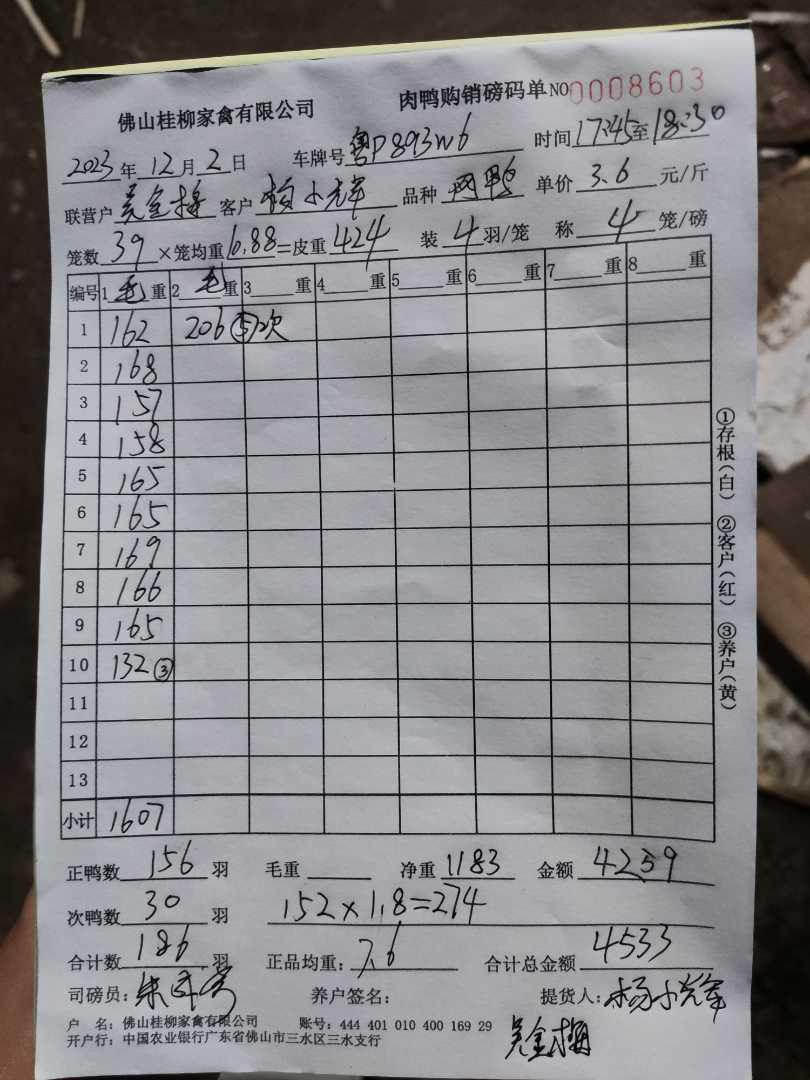 佛山桂柳家禽有限公司 肉鸭购销磅码单 NO 0008603
2023年12月2日 车牌号 粤P893W6 时间 17:45至18:30
联营户 吴金梅 客户 杨小 品种 鸭 单价 3.6 元/斤
笼数 39 ×笼均重 10.88 =皮重 424 装 4 羽/笼 称 4 笼/磅
编号 1 毛 重 2 毛 重 3 重 4 重 5 重 6 重 7 重 8 重
1 162 206 ⑤次
2 168
3 157
4 158
5 165
6 165
7 169
8 166
9 165
10 132 ③
11
12
13
小计 1607
①存根(白) ②客户(红) ③养户(黄)
正鸭数 156 羽 毛重 净重 1183 金额 4259
次鸭数 30 羽 152×1.8=274
合计数 186 羽 正品均重: 7.6 合计总金额 4533
司磅员: 朱 养户签名: 提货人: 杨小
吴金梅
户 名: 佛山桂柳家禽有限公司 账号: 444 401 010 400 169 29
开户行: 中国农业银行广东省佛山市三水区三水支行